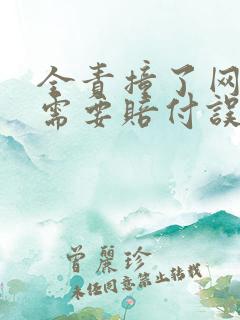 全责撞了网
需要赔付误
曾丽珍
未经同意禁止转载